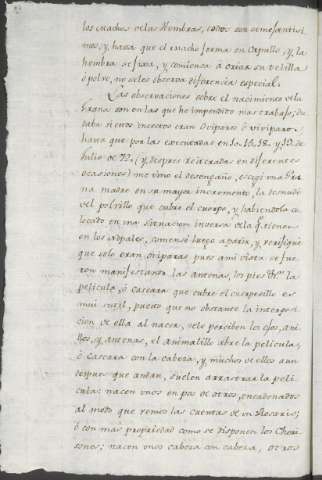 los machos de las Hembras, todos son semejantisi-
mos, y, hasta que el macho forma su Capullo, y, la
hembra se fixa, y, comienza á criar su telilla
ó polvo, no se les observa diferencia especial.
Las observaciones sobre el nacimiento de la
Grana son en las que he impendido mas trabajo; du-
daba si estos insectos eran Oviparos ó viviparos,
hasta que por las executadas en 10. 16. 18. y 19. de
Julio de 72. (y, despues reiteradas en diferentes
ocasiones) me vino el desengaño, escogi una bue-
na madre en su mayor incremento, la desnudé
del polvillo que cubre el cuerpo, y, habiendola co-
locado en una situacion inversa de la que tienen
en los nopales, comenzó luego á parir, y verifiqué
que solo eran oviparas, pues á mi vista se fue-
ron manifestando las antenas, los pies &a la
pelicula, ó cascara que cubre el cuerpecillo es
mui sutil, puesto que no obstante la interposi-
cion de ella al nacer, se le perciben los ojos, ani-
llos, y antenas, el animalillo abre la pelicula,
ó cascara con la cabeza, y muchos de ellos aun
despues que andan, suelen arrastrar la peli-
cula: nacen unos en pos de otros, encadenados
al modo que vemos las cuentas de un Rosario;
ó con más propriedad como se disponen los Chori-
zones; nacen unos cabeza con cabeza, otros